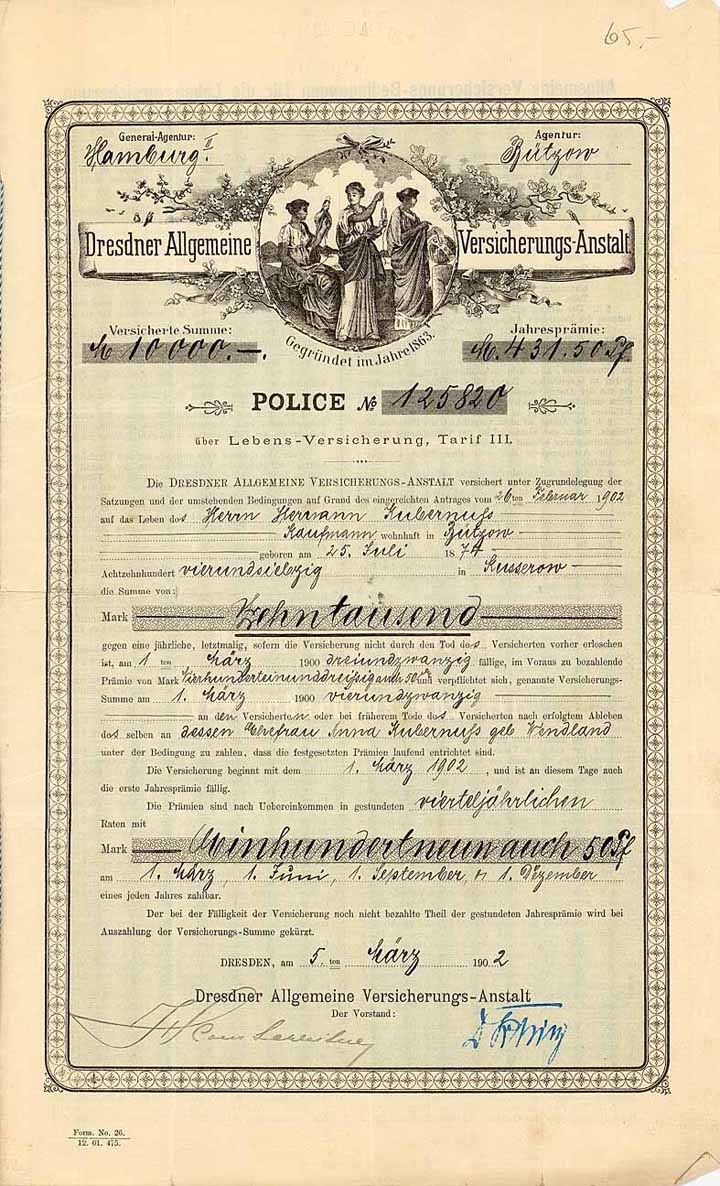 65,-
General-Agentur:
Hamburg II.
Agentur:
Bützow
Dresdner Allgemeine Versicherungs-Anstalt
Gegründet im Jahre 1863.
Versicherte Summe:
M 10000.-.
Jahresprämie:
M. 431.50 Pf
POLICE No 125820
über Lebens-Versicherung, Tarif III.
Die DRESDNER ALLGEMEINE VERSICHERUNGS-ANSTALT versichert unter Zugrundelegung der
Satzungen und der umstehenden Bedingungen auf Grund des eingereichten Antrages vom 26ten Februar 1902
auf das Leben des Herrn Hermann Kubernuß
Kaufmann wohnhaft in Bützow
geboren am 25. Juli 1874
Achtzehnhundert vierundsiebzig in Kusserow
die Summe von:
Mark Zehntausend
gegen eine jährliche, letztmalig, sofern die Versicherung nicht durch den Tod des Versicherten vorher erloschen
ist, am 1 ten März 1900 dreiundzwanzig fällige, im Voraus zu bezahlende
Prämie von Mark Vierhunderteinunddreißig auch 50 Pf und verpflichtet sich, genannte Versicherungs-
Summe am 1. März 1900 vierundzwanzig
an den Versicherten oder bei früherem Tode des Versicherten nach erfolgtem Ableben
des selben an dessen Ehefrau Anna Kubernuß geb Wendland
unter der Bedingung zu zahlen, dass die festgesetzten Prämien laufend entrichtet sind.
Die Versicherung beginnt mit dem 1. März 1902, und ist an diesem Tage auch
die erste Jahresprämie fällig.
Die Prämien sind nach Uebereinkommen in gestundeten vierteljährlichen
Raten mit
Mark Einhundertneun auch 50 Pf
am 1. März, 1. Juni, 1. September, 1. Dezember
eines jeden Jahres zahlbar.
Der bei der Fälligkeit der Versicherung noch nicht bezahlte Theil der gestundeten Jahresprämie wird bei
Auszahlung der Versicherungs-Summe gekürzt.
DRESDEN, am 5. ten März 1902
Dresdner Allgemeine Versicherungs-Anstalt
Der Vorstand:
Form. No. 26.
12. 01. 475.